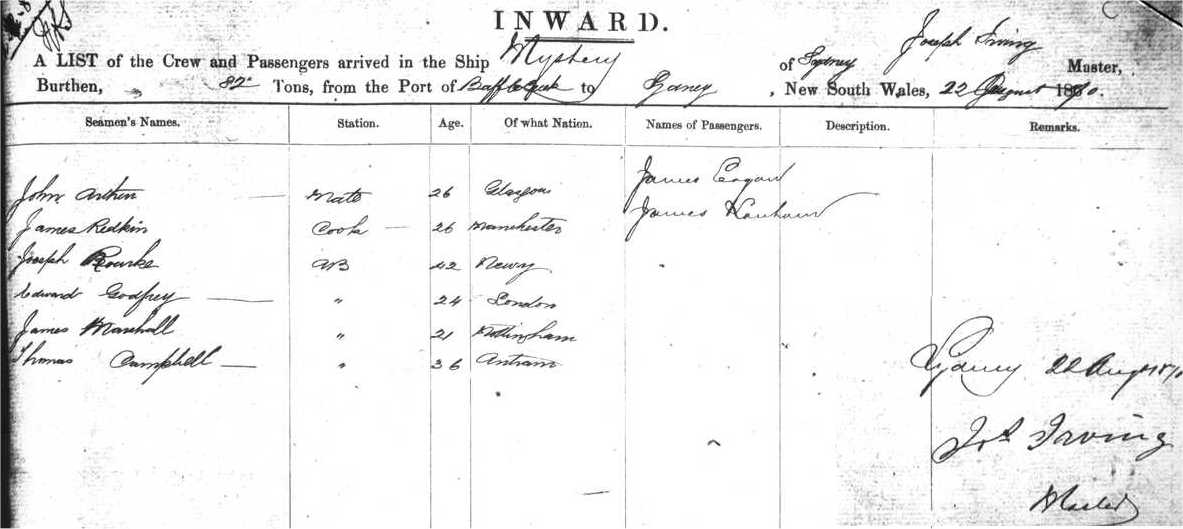 INWARD.
Joseph Irving
A LIST of the Crew and Passengers arrived in the Ship Mystery of Sydney Master,
Burthen, 82 Tons, from the Port of to Sydney, New South Wales, 22 August 1870.
Seamen's Names. Station. Age. Of what Nation. Names of Passengers. Description. Remarks.
James
John Mate 26 Glasgow James
James Redkin Cook 26 Manchester
Joseph Rourke AB 42 Newry
Edward Godfrey " 24 London
James Marshall " 21 Nottingham
Thomas Campbell " 36 Antram
Sydney 22 Aug 1870
Jos Irving
Master